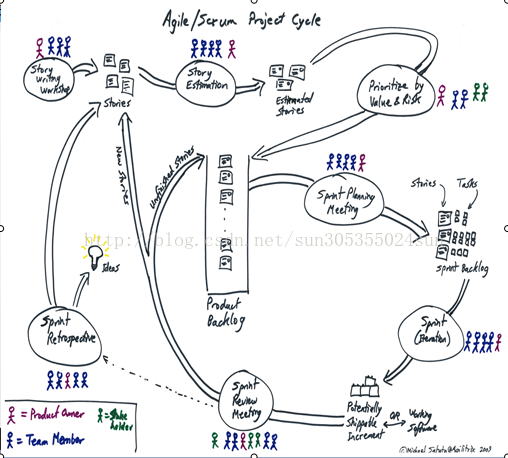 Agile/Scrum Project Cycle
Story
Writing
Workshop
Stories
Story
Estimation
Estimated
Stories
Prioritize by
Value & Risk
New Stories
Unfinished Stories
Sprint Planning
Meeting
Stories
Tasks
http://blog.csdn.net/sun305355024sun
Sprint Backlog
Ideas
Product
Backlog
Sprint
Retrospective
Sprint
(Iteration)
Sprint
Review
Meeting
Potentially
Shippable
Increment
OR
Working
Software
= Product Owner
= Stake
holder
= Team Member
2009